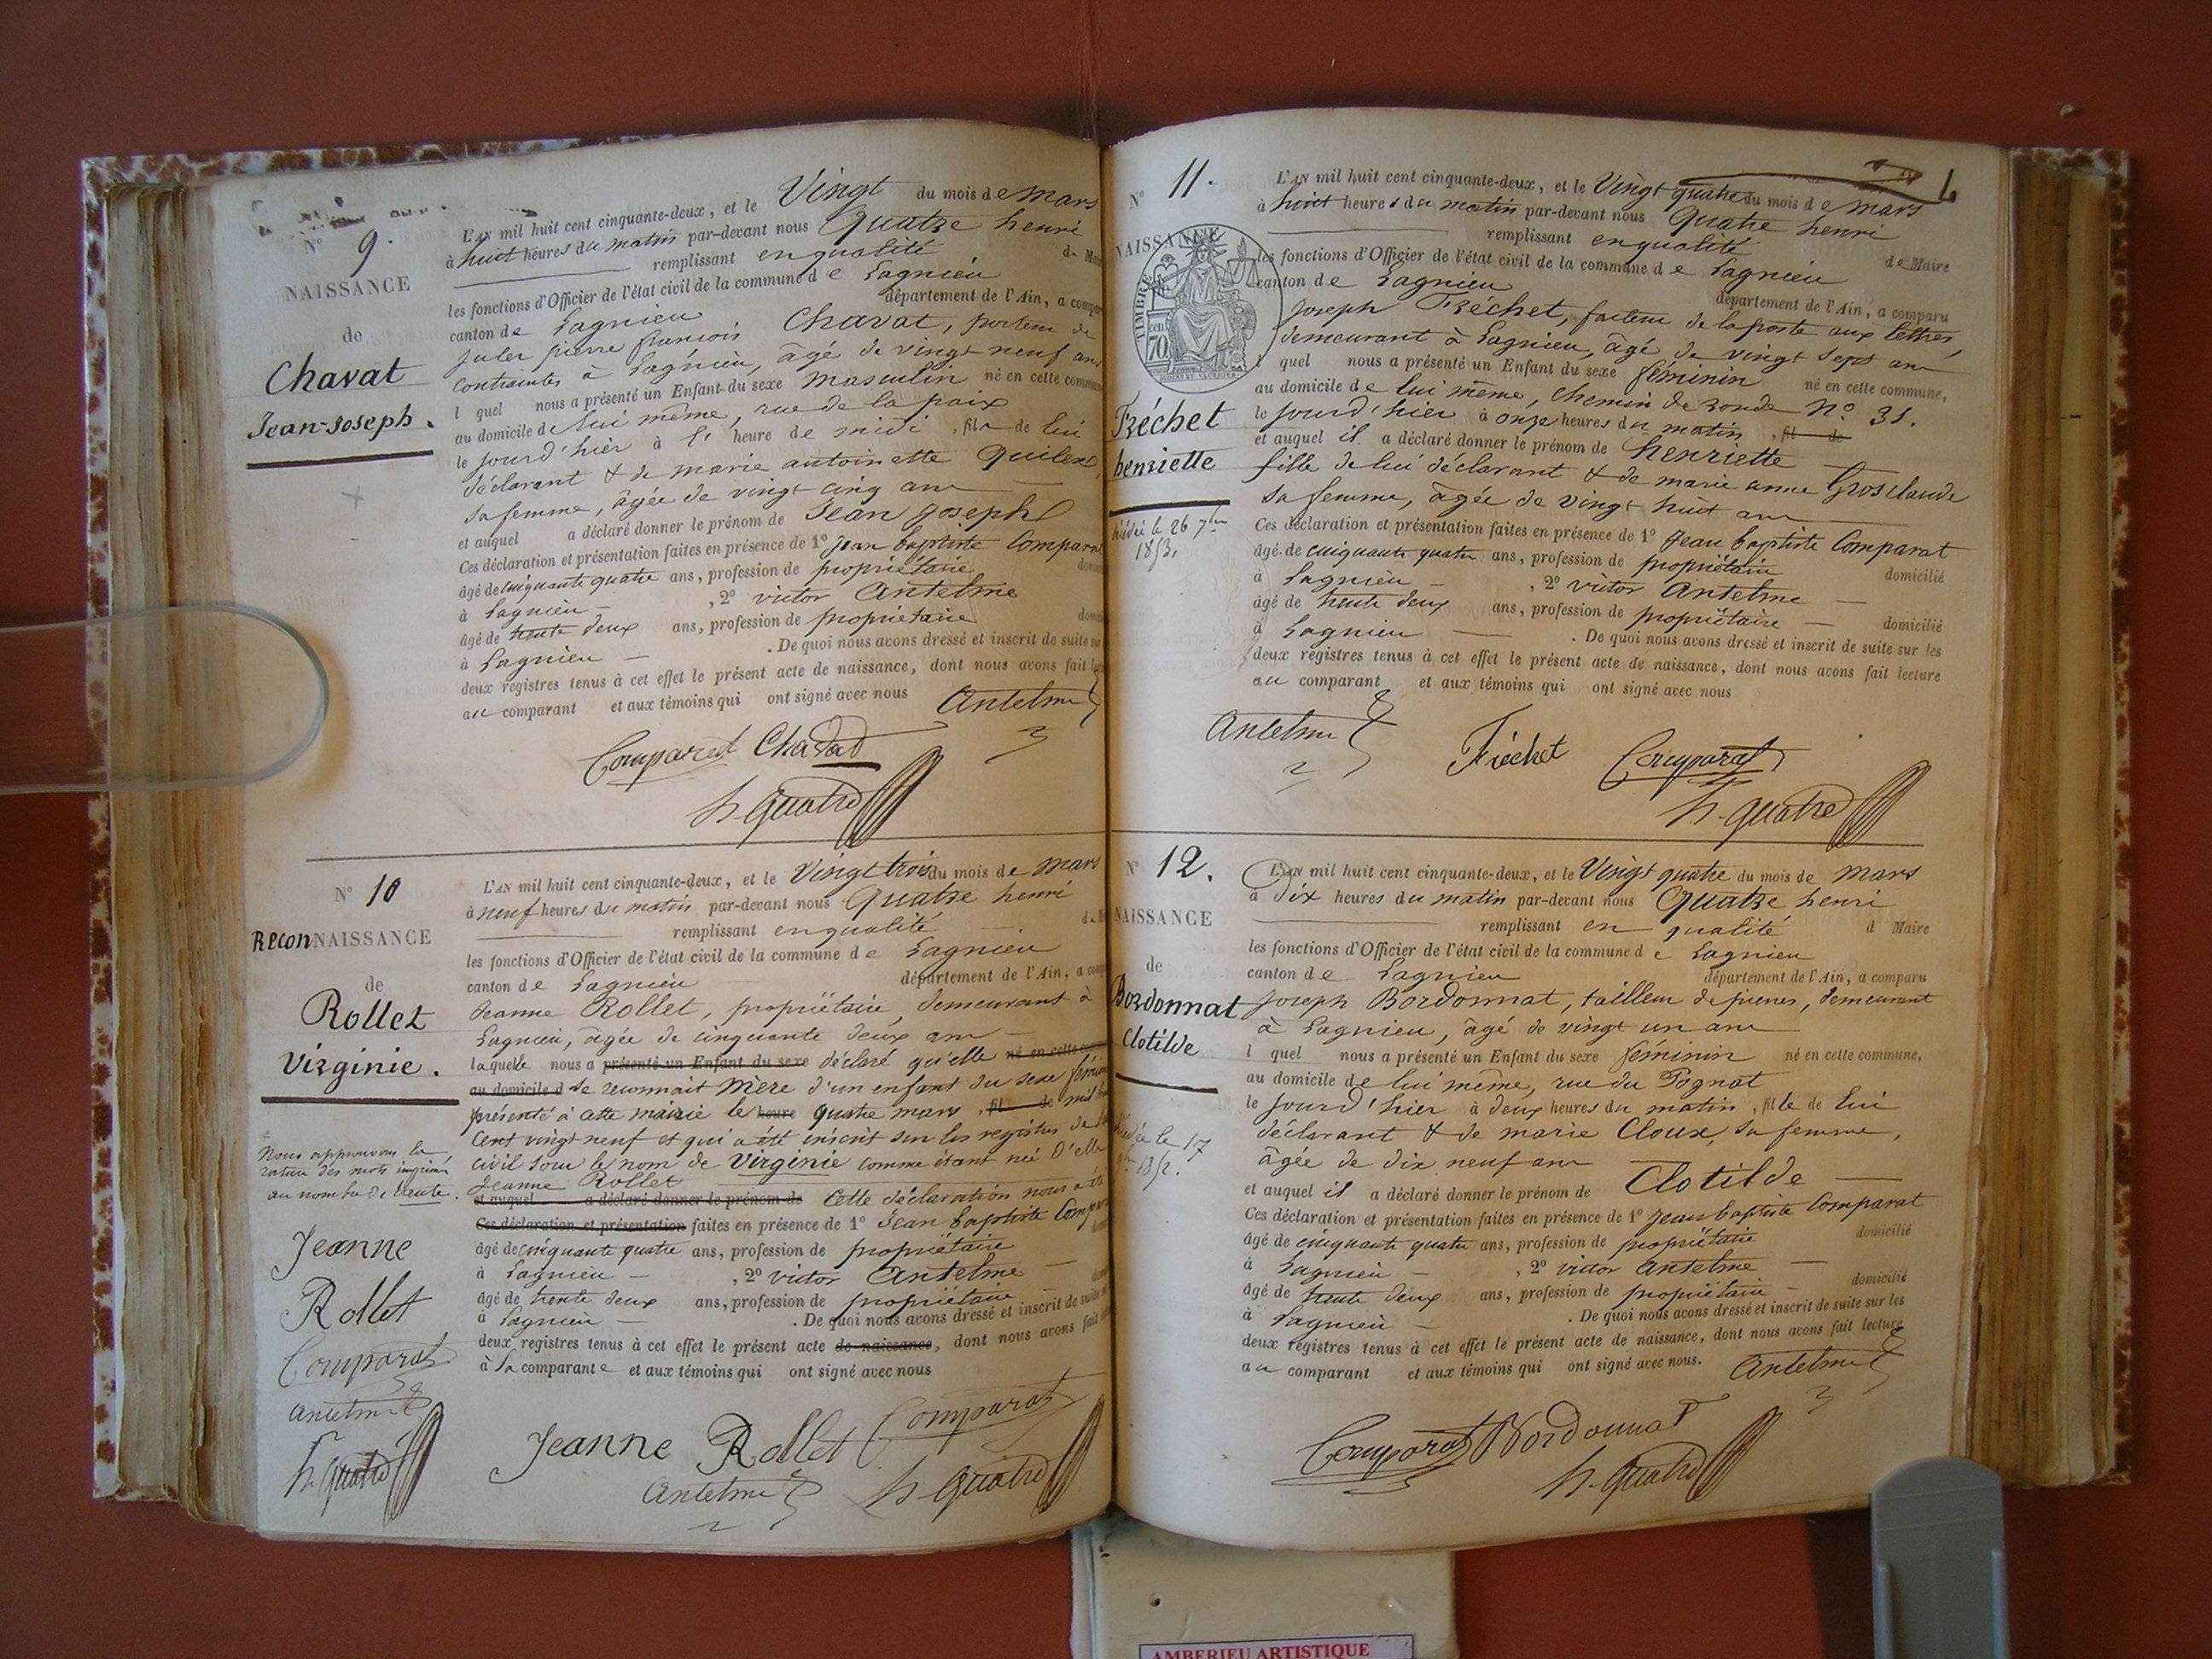 N° 9.
NAISSANCE
de
Chavat
Jean-Joseph.
L'AN mil huit cent cinquante-deux, et le Vingt du mois de mars
à huit heures du matin par-devant nous Quatre henri
remplissant en qualité de Mai
les fonctions d'Officier de l'état civil de la commune de Lagnieu
canton de Lagnieu département de l'Ain, a comparu
Jules pierre francois Chavat, porteur de
contraintes à Lagnieu, âgé de vingt neuf ans
lequel nous a présenté un Enfant du sexe masculin né en cette commune
au domicile de lui même, rue de la paix
le jourd'hier à l' heure de midi, fils de lui
déclarant & de marie antoinette
sa femme, âgée de vingt cinq ans
et auquel a déclaré donner le prénom de Jean Joseph
Ces déclaration et présentation faites en présence de 1° Jean baptiste Comparat
âgé de cinquante quatre ans, profession de propriétaire
à Lagnieu, 2° victor Antelme
âgé de trente deux ans, profession de propriétaire
à Lagnieu. De quoi nous avons dressé et inscrit de suite sur
deux registres tenus à cet effet le présent acte de naissance, dont nous avons fait
au comparant et aux témoins qui ont signé avec nous
Antelme
Comparat Chavat
h. Quatre
N° 10
ReconNAISSANCE
de
Rollet
Virginie.
Nous approuvons la
rature des mots imprimés
au nombre de trente.
Jeanne
Rollet
Comparat
Antelme
h. Quatre
L'AN mil huit cent cinquante-deux, et le Vingt trois du mois de mars
à neuf heures du matin par-devant nous Quatre henri
remplissant en qualité
les fonctions d'Officier de l'état civil de la commune de Lagnieu
canton de Lagnieu département de l'Ain, a comp
Jeanne Rollet, propriétaire, demeurant à
Lagnieu, âgée de cinquante deux ans
laquelle nous a présenté un Enfant du sexe déclaré qu'elle né en cette
au domicile d se reconnait mère d'un enfant du sexe fémin
présenté à cette mairie le heure quatre mars, fil de mil
cent vingt neuf et qui a été inscrit sur les registres de
civil sous le nom de Virginie comme étant née d'elle
Jeanne Rollet
et auquel a déclaré donner le prénom de Cette déclaration nous a été
Ces déclaration et présentation faites en présence de 1° Jean baptiste Compar
âgé de cinquante quatre ans, profession de propriétaire
à Lagnieu, 2° victor Antelme
âgé de trente deux ans, profession de propriétaire
à Lagnieu. De quoi nous avons dressé et inscrit de suite
deux registres tenus à cet effet le présent acte de naissance, dont nous avons fait
à la comparante et aux témoins qui ont signé avec nous
Jeanne Rollet Comparat
Antelme h. Quatre
N° 11.
NAISSANCE
TIMBRE
cen
70
Fréchet
henriette
décédée le 26 7bre
1853.
L'AN mil huit cent cinquante-deux, et le Vingt quatre du mois de mars
à huit heures du matin par-devant nous Quatre henri
remplissant en qualité de Maire
les fonctions d'Officier de l'état civil de la commune de Lagnieu
canton de Lagnieu département de l'Ain, a comparu
Joseph Fréchet, facteur de la poste aux lettres,
demeurant à Lagnieu, âgé de vingt sept ans
lequel nous a présenté un Enfant du sexe féminin né en cette commune,
au domicile de lui même, chemin de ronde N° 31.
le jourd'hier à onze heures du matin, fil de
et auquel il a déclaré donner le prénom de henriette
fille de lui déclarant & de marie anne Grosclaude
sa femme, âgée de vingt huit ans
Ces déclaration et présentation faites en présence de 1° Jean baptiste Comparat
âgé de cinquante quatre ans, profession de propriétaire domicilié
à Lagnieu, 2° victor Antelme
âgé de trente deux ans, profession de propriétaire domicilié
à Lagnieu. De quoi nous avons dressé et inscrit de suite sur les
deux registres tenus à cet effet le présent acte de naissance, dont nous avons fait lecture
au comparant et aux témoins qui ont signé avec nous
Antelme Fréchet Comparat
h. Quatre
N° 12.
NAISSANCE
de
Bordonnat
Clotilde
décédée le 17
1852.
L'AN mil huit cent cinquante-deux, et le Vingt quatre du mois de mars
à dix heures du matin par-devant nous Quatre henri
remplissant en qualité d Maire
les fonctions d'Officier de l'état civil de la commune de Lagnieu
canton de Lagnieu département de l'Ain, a comparu
Joseph Bordonnat, tailleur de pierres, demeurant
à Lagnieu, âgé de vingt un ans
lequel nous a présenté un Enfant du sexe féminin né en cette commune,
au domicile de lui même, rue du Pognat
le jourd'hier à deux heures du matin, fille de lui
déclarant & de marie Cloux, sa femme,
âgée de dix neuf ans
et auquel il a déclaré donner le prénom de Clotilde
Ces déclaration et présentation faites en présence de 1° Jean baptiste Comparat
âgé de cinquante quatre ans, profession de propriétaire domicilié
à Lagnieu, 2° victor Antelme
âgé de trente deux ans, profession de propriétaire domicilié
à Lagnieu. De quoi nous avons dressé et inscrit de suite sur les
deux registres tenus à cet effet le présent acte de naissance, dont nous avons fait lecture
au comparant et aux témoins qui ont signé avec nous.
Antelme
Comparat Bordonnat
h. Quatre
AMBERIEU ARTISTIQUE